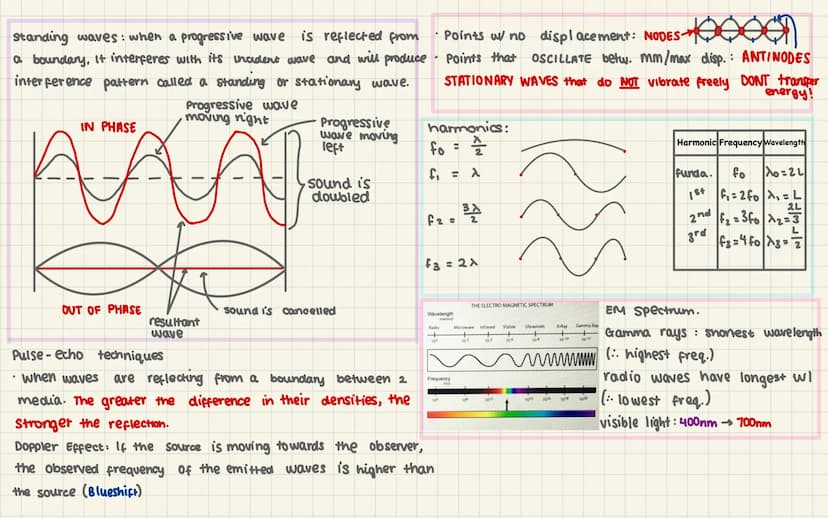 Standing waves: when a progressive wave is reflected from
a boundary, it interferes with its incident wave and will produce
interference pattern called a standing or stationary wave.
IN PHASE
Progressive wave
moving right
Progressive
wave moving
left
sound is
doubled
OUT OF PHASE
resultant
wave
sound is cancelled
Pulse-echo techniques
· When waves are reflecting from a boundary between 2
media. The greater the difference in their densities, the
stronger the reflection.
Doppler Effect: If the source is moving towards the observer,
the observed frequency of the emitted waves is higher than
the source (Blueshift)
· Points w/ no displacement: NODES
· Points that OSCILLATE betw. mm/max disp.: ANTINODES
STATIONARY WAVES that do NOT vibrate freely DONT transfer
energy!
harmonics:
f₀ = λ/2
f₁ = λ
f₂ = 3λ/2
f₃ = 2λ
Harmonic Frequency Wavelength
funda. f₀ λ₀=2L
1st f₁=2f₀ λ₁=L
2nd f₂=3f₀ λ₂=2L/3
3rd f₃=4f₀ λ₃=L/2
THE ELECTRO MAGNETIC SPECTRUM
Wavelength
Radio Microwave Infrared Visible Ultraviolet X-Ray Gamma Ray
Frequency
EM Spectrum.
Gamma rays: shortest wavelength
(∴ highest freq.)
radio waves have longest wl
(∴ lowest freq.)
visible light: 400nm → 700nm